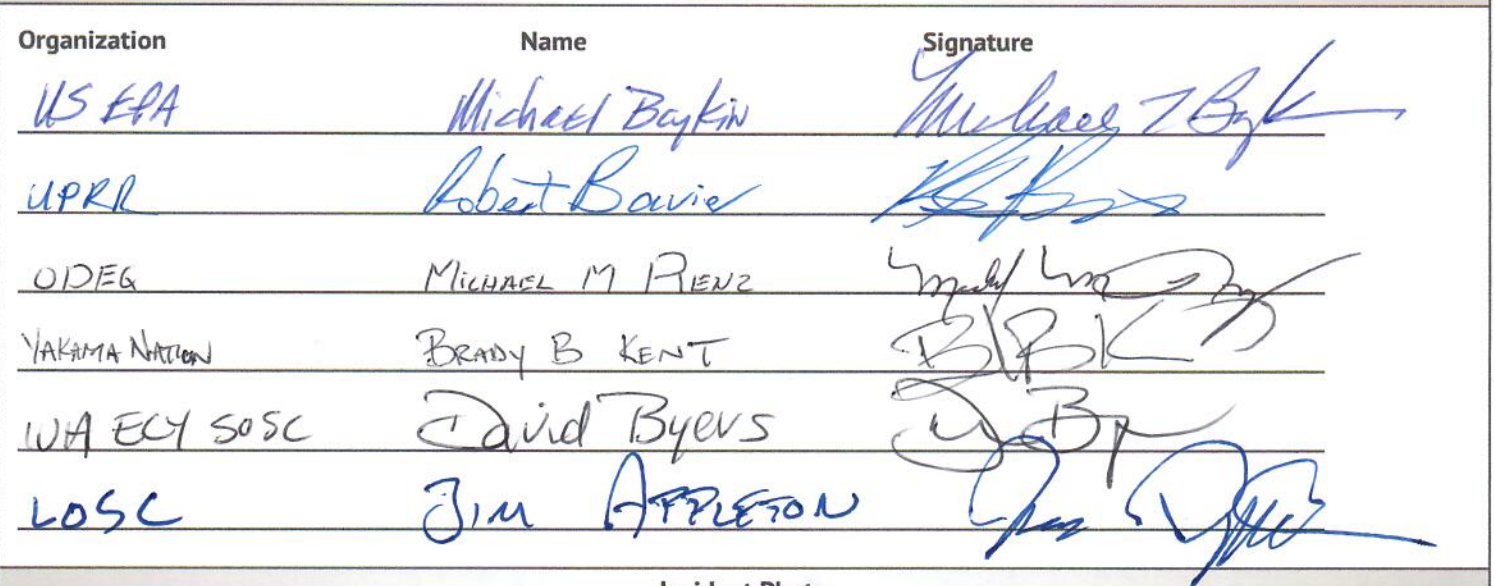 Organization Name Signature
US EPA Michael Boykin Michael T Boyk
UPRR Robert Bavier
ODEQ MICHAEL M RENZ
YAKAMA NATION BRADY B KENT BBK
WA ECY SOSC David Byers
LOSC JIM APPLETON
Incident Photo